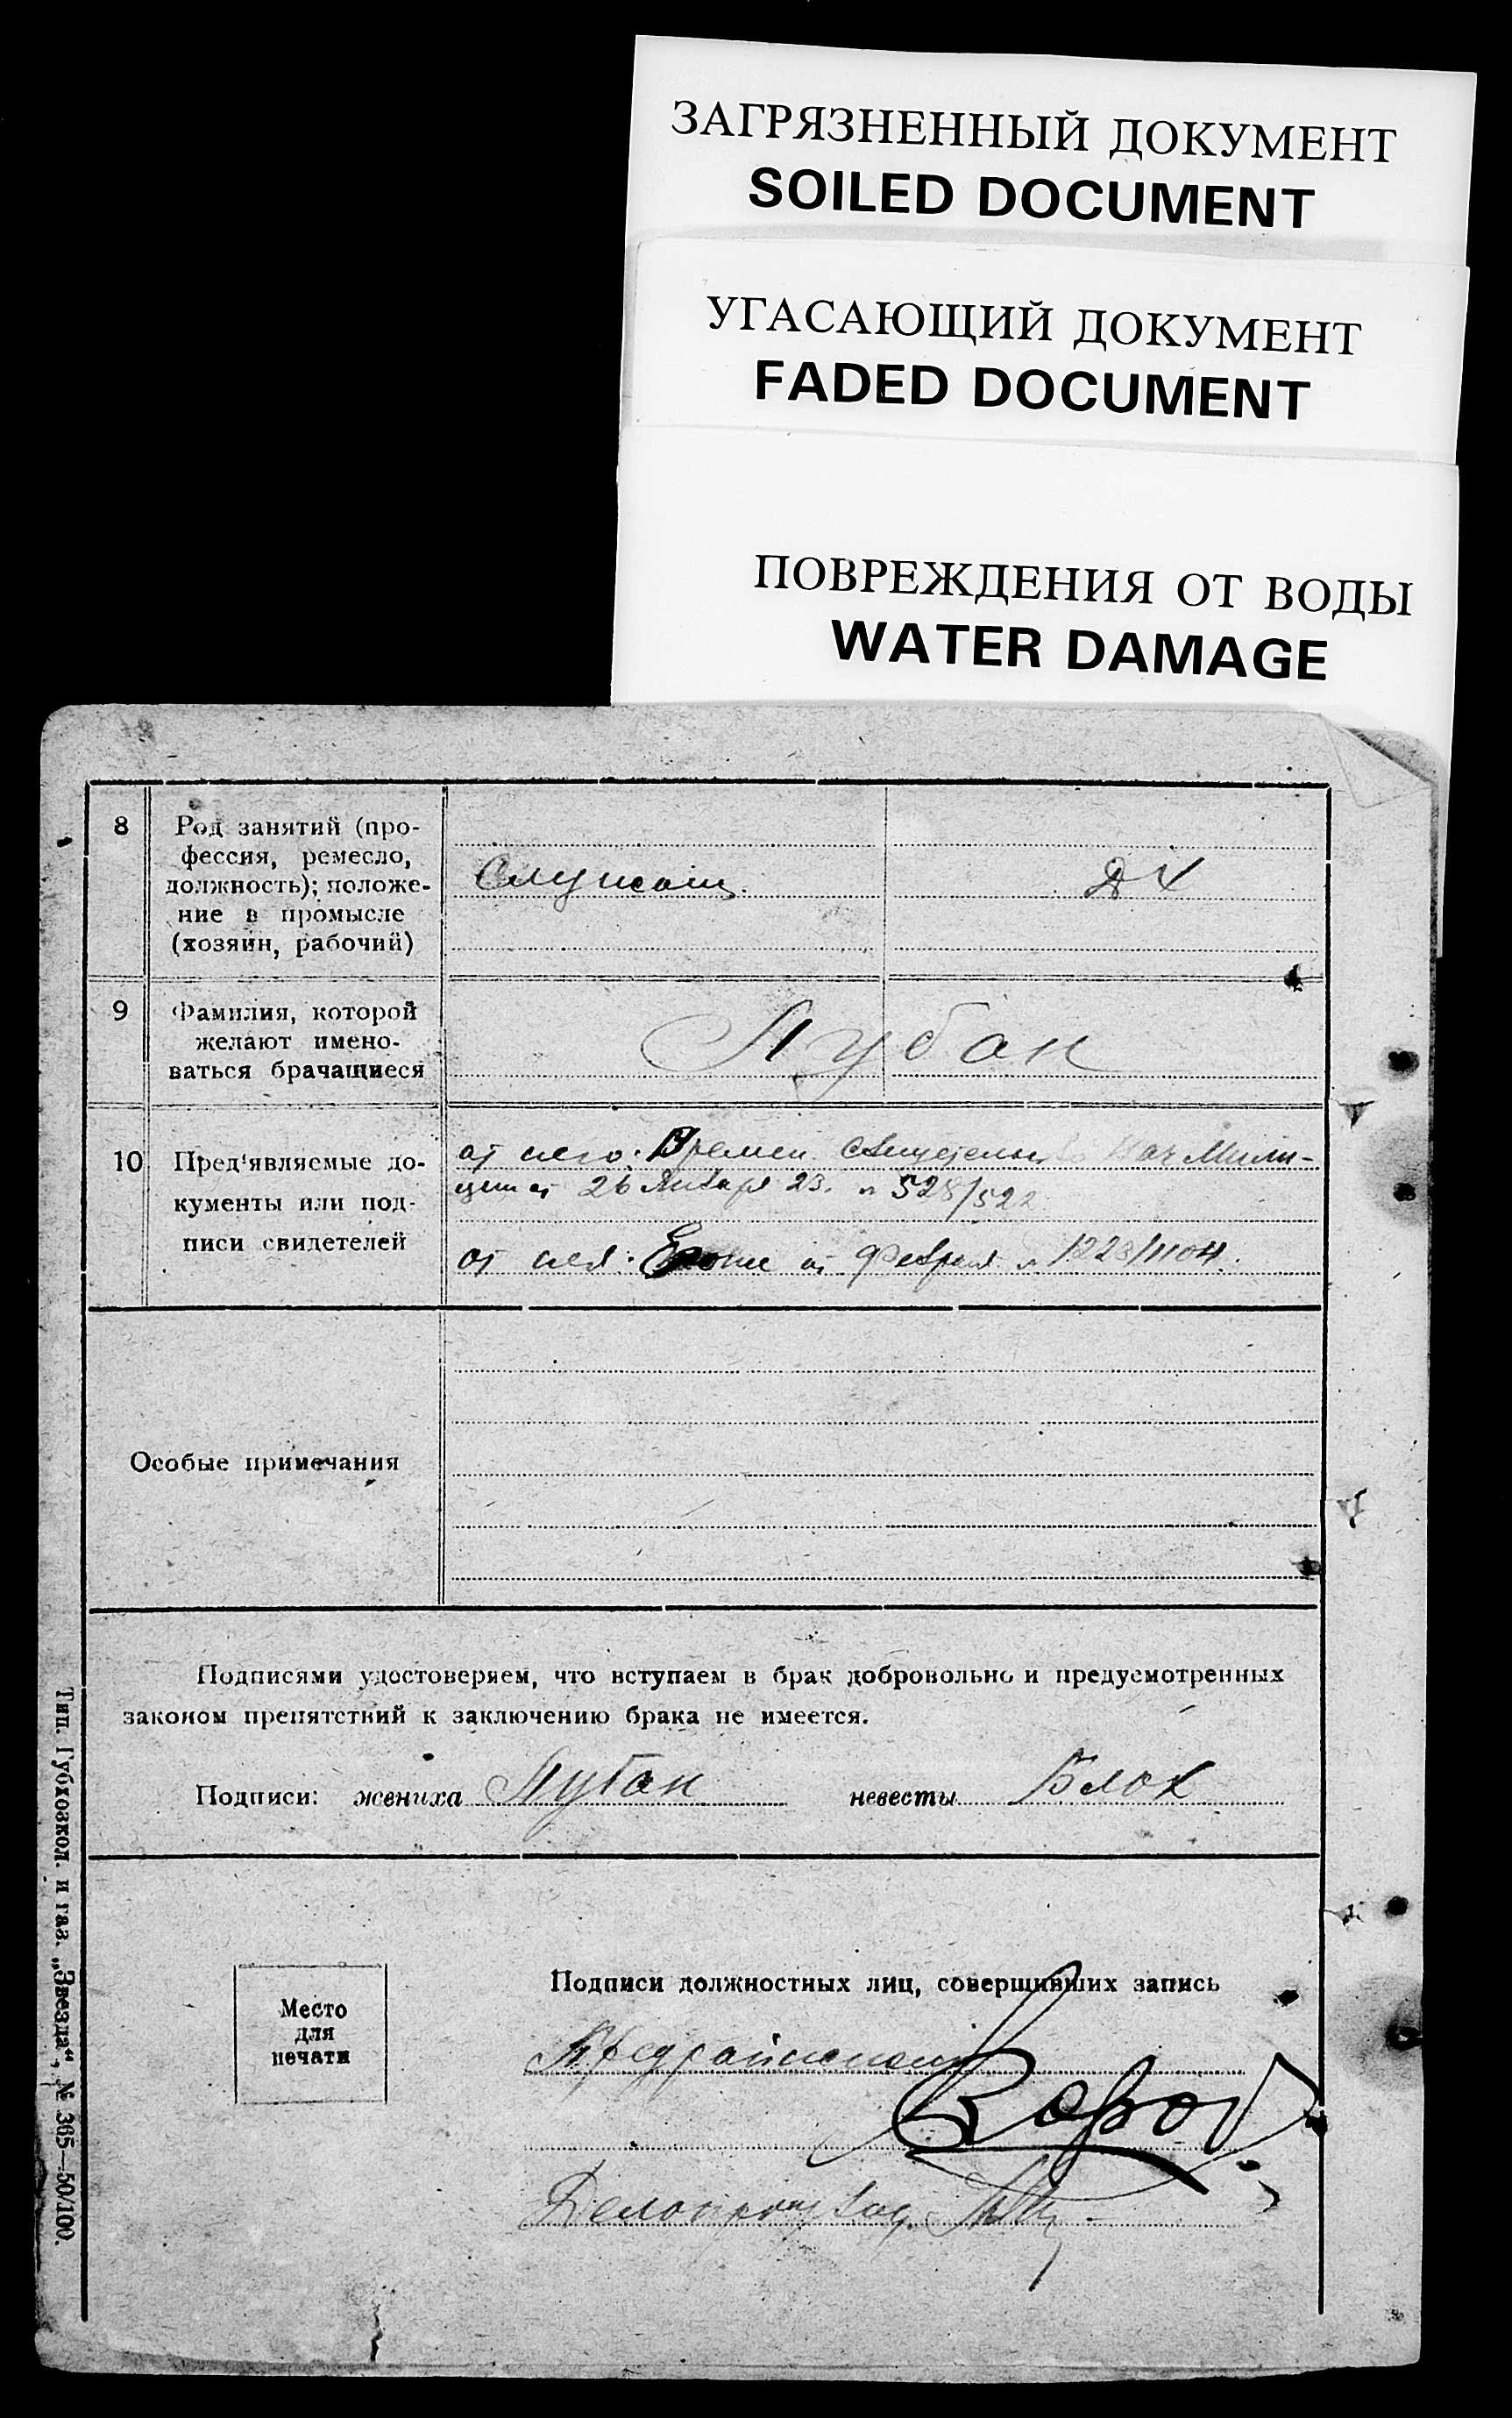 ЗАГРЯЗНЕННЫЙ ДОКУМЕНТ
SOILED DOCUMENT
УГАСАЮЩИЙ ДОКУМЕНТ
FADED DOCUMENT
ПОВРЕЖДЕНИЯ ОТ ВОДЫ
WATER DAMAGE
8
Род занятий (про-
фессия, ремесло,
должность); положе-
ние в промысле
(хозяин, рабочий)
Служащ.
ДХ
9
Фамилия, которой
желают имено-
ваться брачащиеся
Лубан
10
Пред'являемые до-
кументы или под-
писи свидетелей
от него: Времен. Свидетельство Нач Мили-
ции от 26 Января 23. № 528/522
от нея: от Февраля № 1223/1104.
Особые примечания
Подписями удостоверяем, что вступаем в брак добровольно и предусмотренных
законом препятствий к заключению брака не имеется.
Подписи: жениха Лубан невесты Блох
Место
для
печати
Подписи должностных лиц, совершивших запись
Предрайисполк
Делопроизвод.
Тип. Губхозкол. и газ. „Звезда“, № 365—50/100.